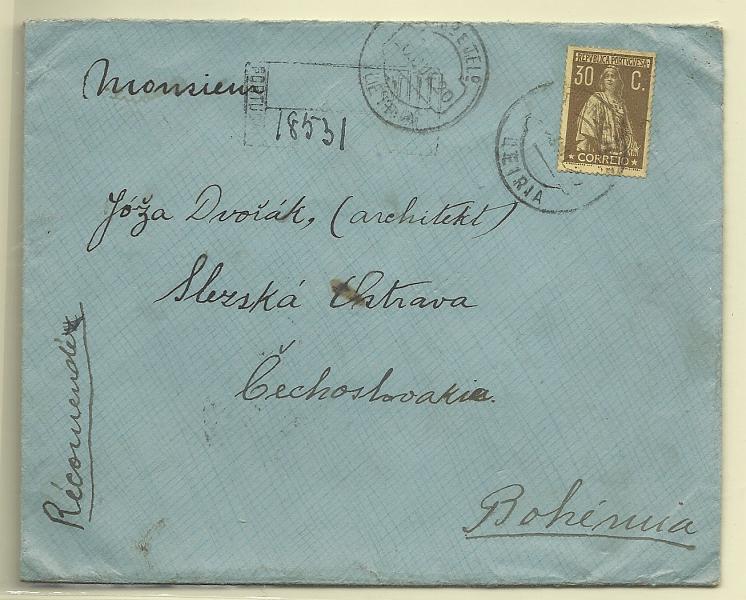 Monsieur
18531
REPUBLICA PORTUGUESA
30 C.
CORREIO
Jóža Dvořák, (architekt)
Slezská Ostrava
Čechoslovakia.
Bohémia
Récomendée